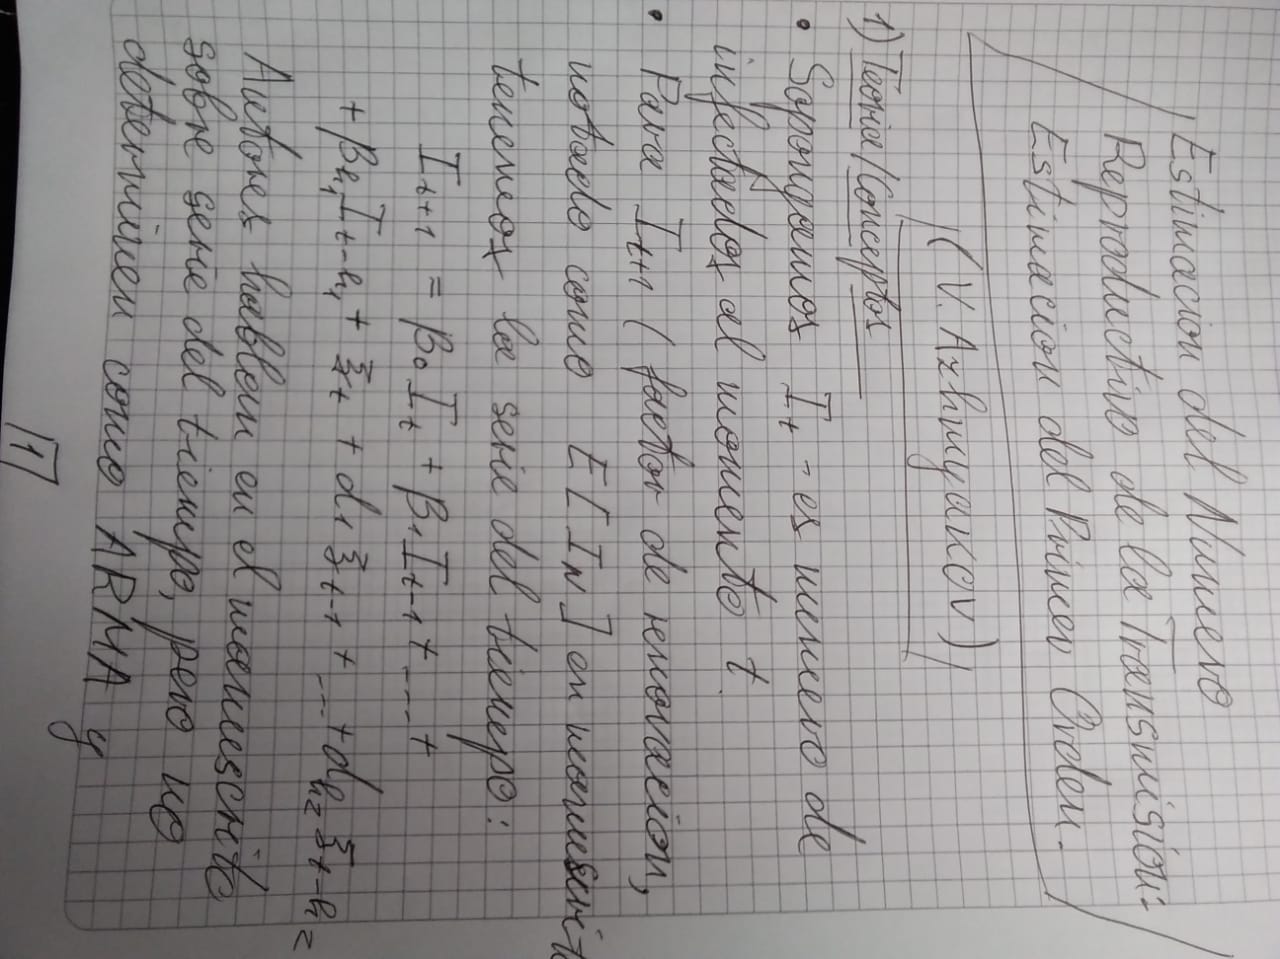 Estimacion del Numero
Reproductivo de la Transmision:
Estimacion del Primer Orden.
(V. Azhmyakov)
1) Teoria/Conceptos
• Sopongamos I_t - es numero de
infectados al momento t.
• Para I_{t+1} (factor de renovacion,
notado como E[I_N] en manuscrito
tenemos la serie del tiempo:
I_{t+1} = β_0 I_t + β_1 I_{t-1} + ... +
+ β_{h_1} I_{t-h_1} + ξ_t + d_1 ξ_{t-1} + ... + d_{h_2} ξ_{t-h_2}
Autores hablan en el manuscrito
sobre serie del tiempo, pero no
determinen como ARMA y
1